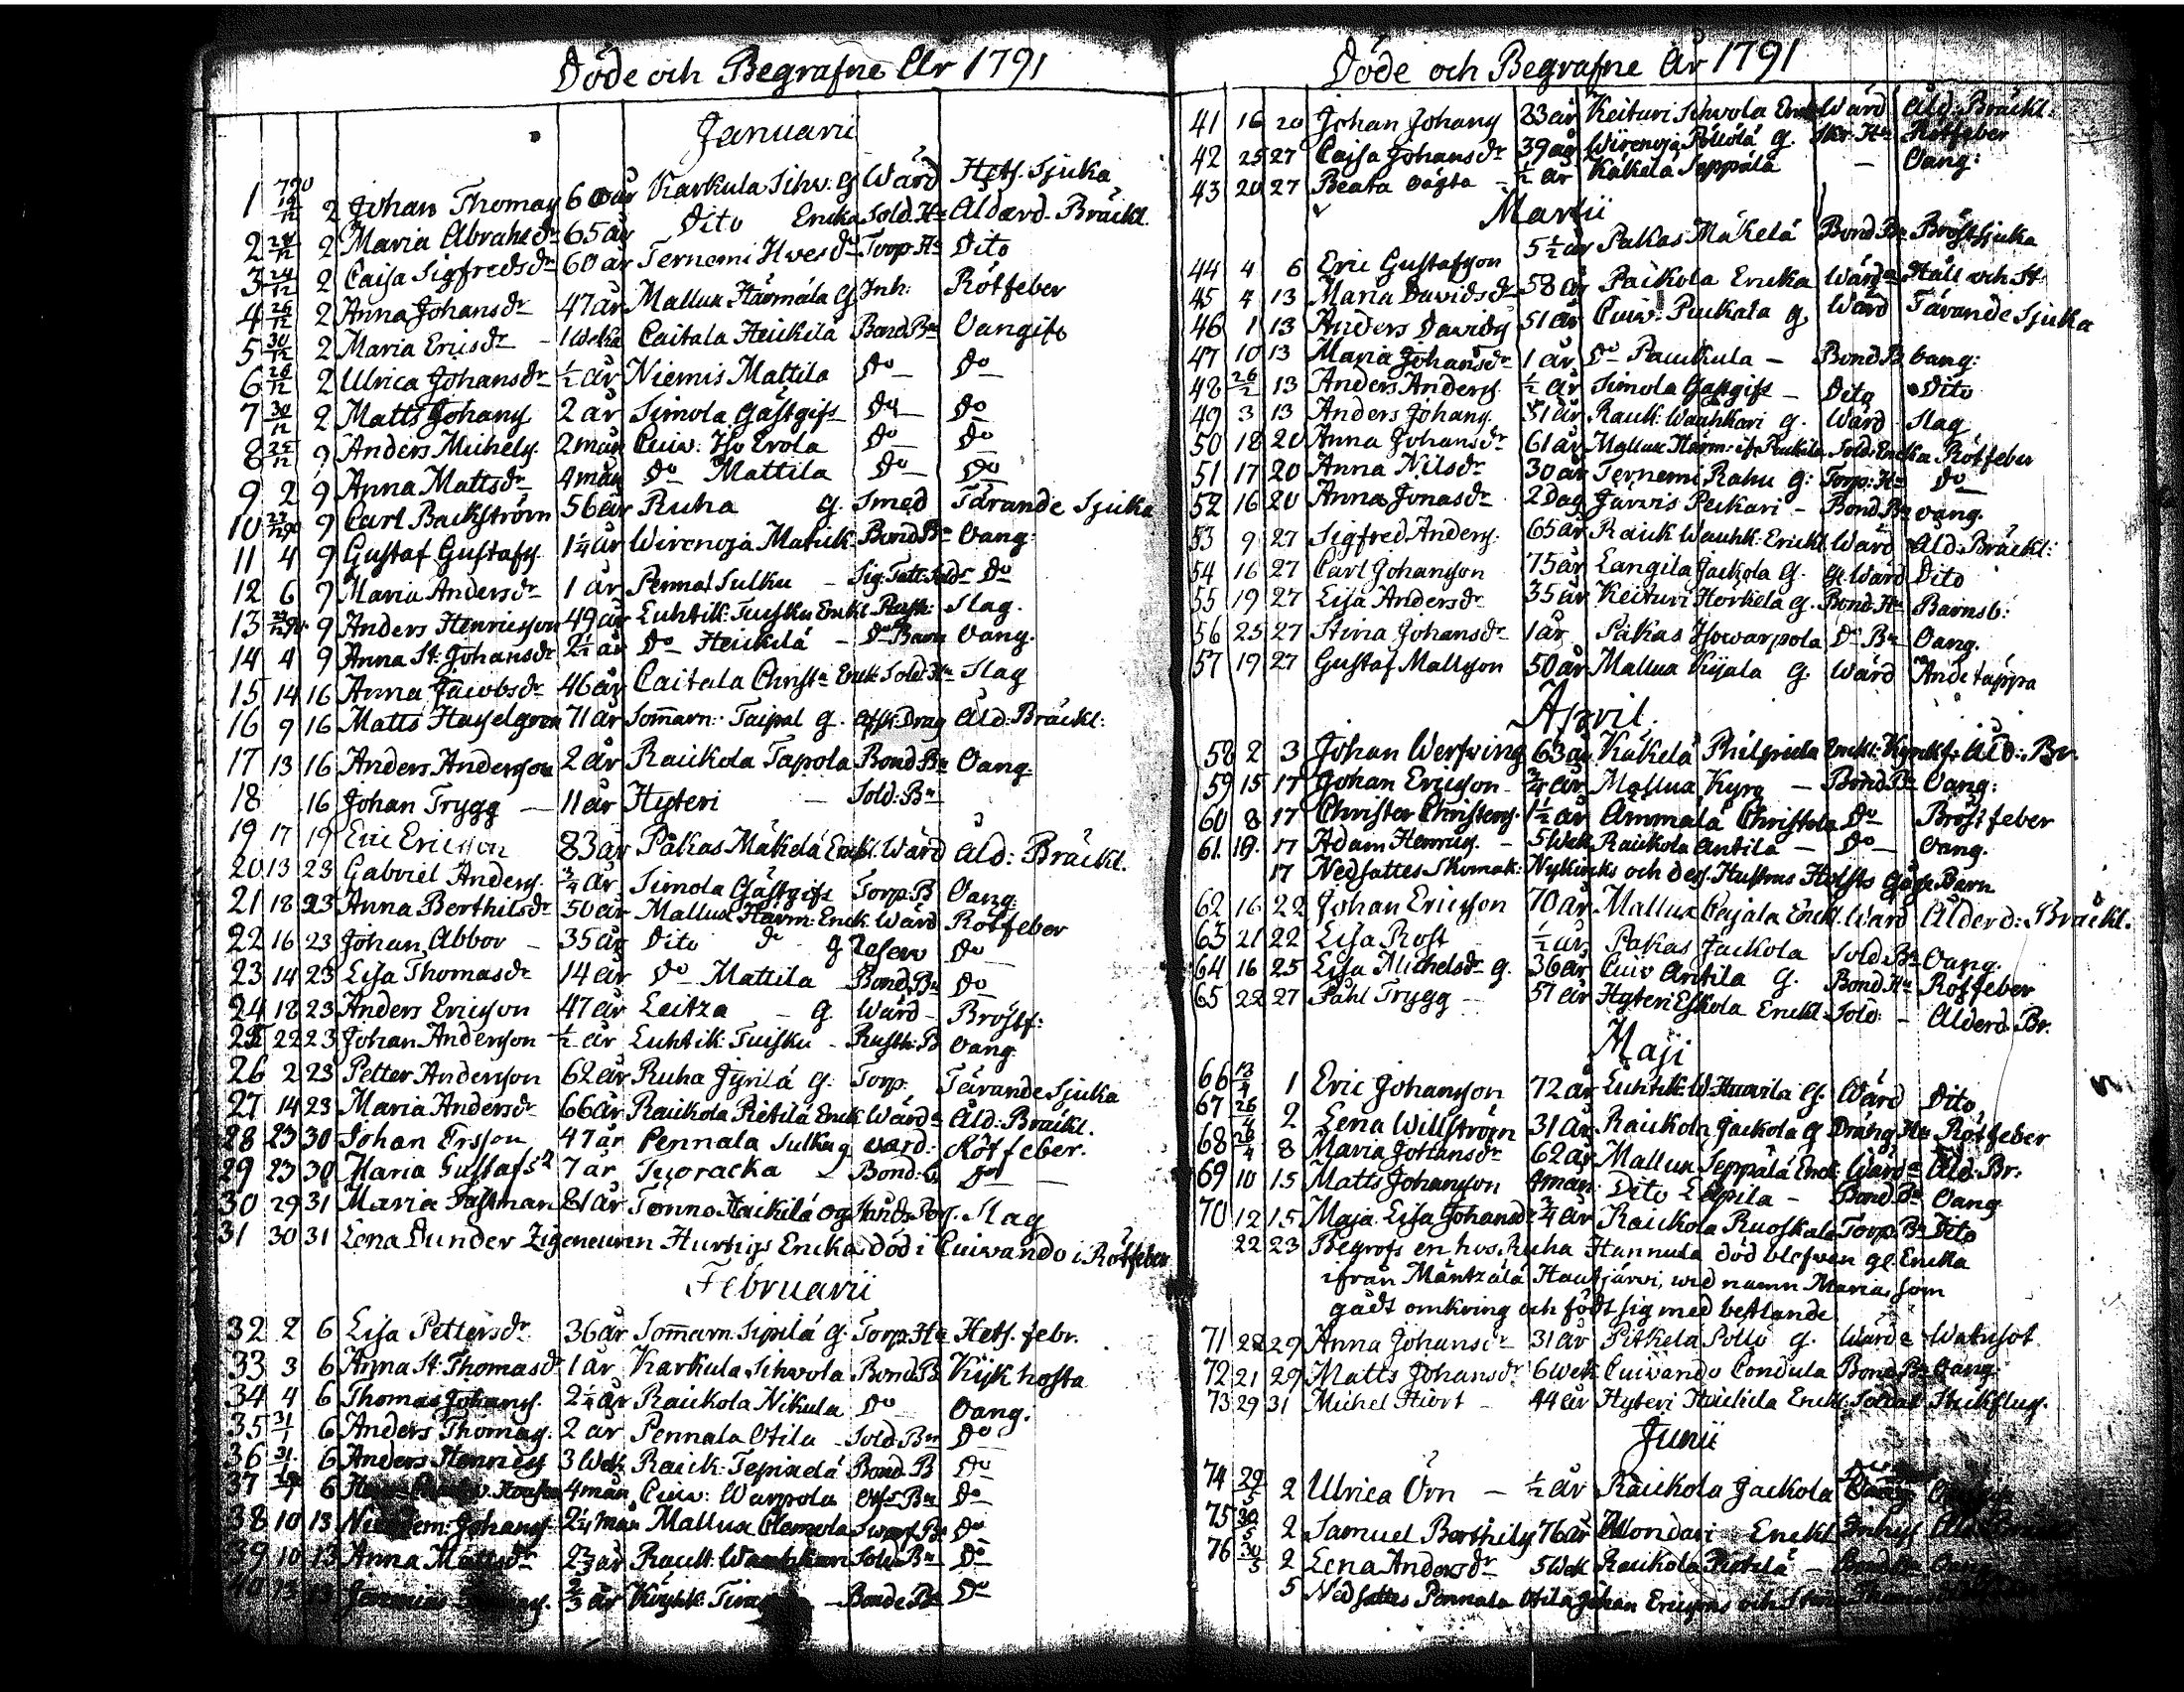 Döde och Begrafne År 1791
Januarii
1 19/12 790 2 Johan Thomass 60 år Karkula Sihv: G Wärd Hets. Sjuka
2 24/12 2 Maria Abrahs dr 65 år Dito Encka Sold. Hu Ålderd. Bräckl.
3 24/12 2 Caisa Sigfreds dr 60 år Ternemi Torp. Hu Dito
4 26/12 2 Anna Johans dr 47 år Mallux Härmälä G Inh: Rötfeber
5 30/12 2 Maria Erics dr - 1 weka Caitala Heickilä Bond Bn Oangifv
6 26/12 2 Ulrica Johans dr ½ år Niemis Mattila Do Do
7 30/12 2 Matts Johans 2 år Simola Gästgifv Do Do
8 25/12 9 Anders Michels. 2 mån Cuiv: Erola Do Do
9 2 9 Anna Matts dr 4 mån Do Mattila Do Do
10 27/12 90 9 Carl Backström 56 år Ruha G. Smed Tärande Sjuka
11 4 9 Gustaf Gustafs 1¼ år Wirenoja Matick Bond Bn Oang:
12 6 9 Maria Anders dr 1 år Pennal Sulku - Do
13 9 Anders Henricsson 49 år Luhtik: Tuisku Enckl Rusth: Slag.
14 4 9 Anna St: Johans dr 2½ år Do Heickilä - Do Barn Oang.
15 14 16 Anna Jacobs dr 46 år Caitala Christa Enck Sold. Hu Slag
16 9 16 Matts Hasselgren 71 år Som̄arn: Taipal G. Afsk: Drag Åld: Bräckl:
17 13 16 Anders Andersson 2 år Raickola Tapola Bond Bn Oang
18 16 Johan Trygg - 11 år Hyteri - Sold. Bn
19 17 19 Eric Ericsson 83 år Pakas Mäkelä Enckl. Wärd Åld: Bräckl.
20 13 23 Gabriel Anders. ¾ år Simola Gästgifv Torp: B Oang:
21 18 23 Anna Berthils dr 50 år Mallux Härm: Enck Wärd Rötfeber
22 16 23 Johan Abbor - 35 år Dito do g Reserv Do
23 14 23 Lisa Thomas dr 14 år Do Mattila Bond. Bn Do
24 18 23 Anders Ericsson 47 år Leitza - G Wärd - Bröstf:
25 22 23 Johan Andersson - ½ år Luhtik: Tuisku - Rusth: B Oang
26 2 23 Petter Andersson 62 år Ruha Jyrilä G. Torp. Tärande Sjuka
27 14 23 Maria Anders dr 66 år Raickola Pietilä Enck Wärd a Åld: Bräckl.
28 23 30 Johan Ersson 47 år Pennala Sulku g värd: Rötfeber.
29 23 30 Maria Gustafs dr 7 år Tuoracka - Bond: Do
30 29 31 Maria Fastman 81 år Tönno Haikilä Slag
31 30 31 Lena Dunder Zigeneuren Hurtigs Encka död i Cuivando i Rötfeber
Februarii
32 2 6 Lisa Petters dr 36 år Som̄arn. Sipilä G. Torp: Hu Hets. febr.
33 3 6 Anna St: Thomas dr 1 år Karkula Sihvola Bond B Kikhosta
34 4 6 Thomas Johans. 2¼ år Raickola Nikula Do Oang.
35 31/1 6 Anders Thomas. 2 år Pennala Otila - Sold. Bn Do
36 31/1 6 Anders Henrics 3 Weck Raick: Bond. B Do
37 6 4 mån Cuiv: Warpola Bn Do
38 10 13 Johans. 2¼ mån Mallux Clemola Bn Do
39 10 13 Anna Matts dr 2⅔ år Raick. Wauhkari Sold. Bn Do
40 13 13 Jeremias ⅔ år - Bonde Bn Do
Döde och Begrafne År 1791
41 16 20 Johan Johans 83 år Keituri Sihvola Enck Wärd Åld: Bräckl:
42 25 27 Cajsa Johans dr 39 år Wirenoja Pällölä G. Skr: Hu Rötfeber
43 20 27 Beata oägta - ½ år Käkelä Seppälä - Oang:
Martii
44 4 6 Eric Gustafsson 5½ år Pakas Mäkelä Bond Bn Bröstsjuka
45 4 13 Maria Davids dr 58 år Paickola Encka Wärd a Håll och St.
46 1 13 Anders Davids 51 år Cuiv. Puckala G. Wärd Tärande Sjuka
47 10 13 Maria Johans dr 1 år Do Pauckula - Bond B Oang:
48 26/2 13 Anders Anders. ½ år Simola Gästgifv - Dito Dito
49 3 13 Anders Johans. 51 år Raick: Wauhkari G. Wärd Slag
50 18 20 Anna Johans dr 61 år Mallux Härm: Sold: Encka Rötfeber
51 17 20 Anna Nils dr 30 år Ternemi Rahu G: Torp: Hu Do
52 16 20 Anna Jonas dr 2 Dag Järvis Peckari - Bond Bn Oang.
53 9 27 Sigfred Anders. 65 år Raick Wauhk: Enckl Wärd Åld: Bräckl:
54 16 27 Carl Johansson 75 år Langila Jackola G. gl. Wärd Dito
55 19 27 Lisa Anders dr 35 år Keituri Horkela G. Bond. Hu Barnsb:
56 25 27 Stina Johans dr 1 år Pakas Howarpola Do Bn Oang.
57 19 27 Gustaf Mattsson 50 år Mallux Kijala G. Wärd Andetäppa
April.
58 2 3 Johan Werfving 63 år Käkelä Philpula Enckl: Åld: Br.
59 15 17 Johan Ericsson ¾ år Mallux Kyrö - Bond Bn Oang:
60 8 17 Christer Christers. 1½ år Ammälä Christola Do Bröstfeber
61 10 17 Adam Henrics. - 5 Weck Raickola Antila - Do - Oang.
17 Nedsattes Skomak: Nykircks och dess Hustrus Barn
62 16 22 Johan Ericsson 70 år Mallux Cajala Enckl. Wärd Ålderd: Bräckl.
63 21 22 Lisa Rost ½ år Pakas Jackola Sold Bn Oang.
64 16 25 Lisa Michels dr g. 36 år Cuiv Antila G. Bond Hu Rötfeber
65 22 27 Påhl Trygg - 57 år Hyteri Eskola Enckl. Sold: - Ålderd. Br.
Maji
66 13/4 1 Eric Johansson 72 år Luhtik: W. Huavila G. Wärd Dito
67 26/4 2 Lena Willström 31 år Raickola Jackola G Dräng Hu Rötfeber
68 26/4 8 Maria Johans dr 62 år Mallux Seppälä Enck: Wärd a Åld. Br.
69 10 15 Matts Johansson mån Dito - Bond Bn Oang
70 12 15 Maja Lisa Johans dr ¾ år Raickola Ruoskala Torp. Bn Dito
22 23 Begrofs en hos Ruha Hannula död blefven gl. Encka
ifrån Mäntzälä Hautjärvi, wid namn Maria, som
gådt omkring och födt sig med betlande
71 22 29 Anna Johans dr 31 år Pitkelä Pollo g. Wärd a Watusot
72 21 29 Matts Johans dr 6 weck Cuivando Condula Bond Bn Oang.
73 29 31 Michel Hiort - 44 år Hyteri Haickila Enckl. Soldat Stickflug.
Junii
74 29/5 2 Ulrica Örn - ½ år Raickola Jackola
75 30/5 2 Samuel Berthils 76 år Enckl Inhys
76 30/5 2 Lena Anders dr 5 Weck Raickola Pietilä -
5 Nedsattes Pennala Otila Johan Ericssons och Stina